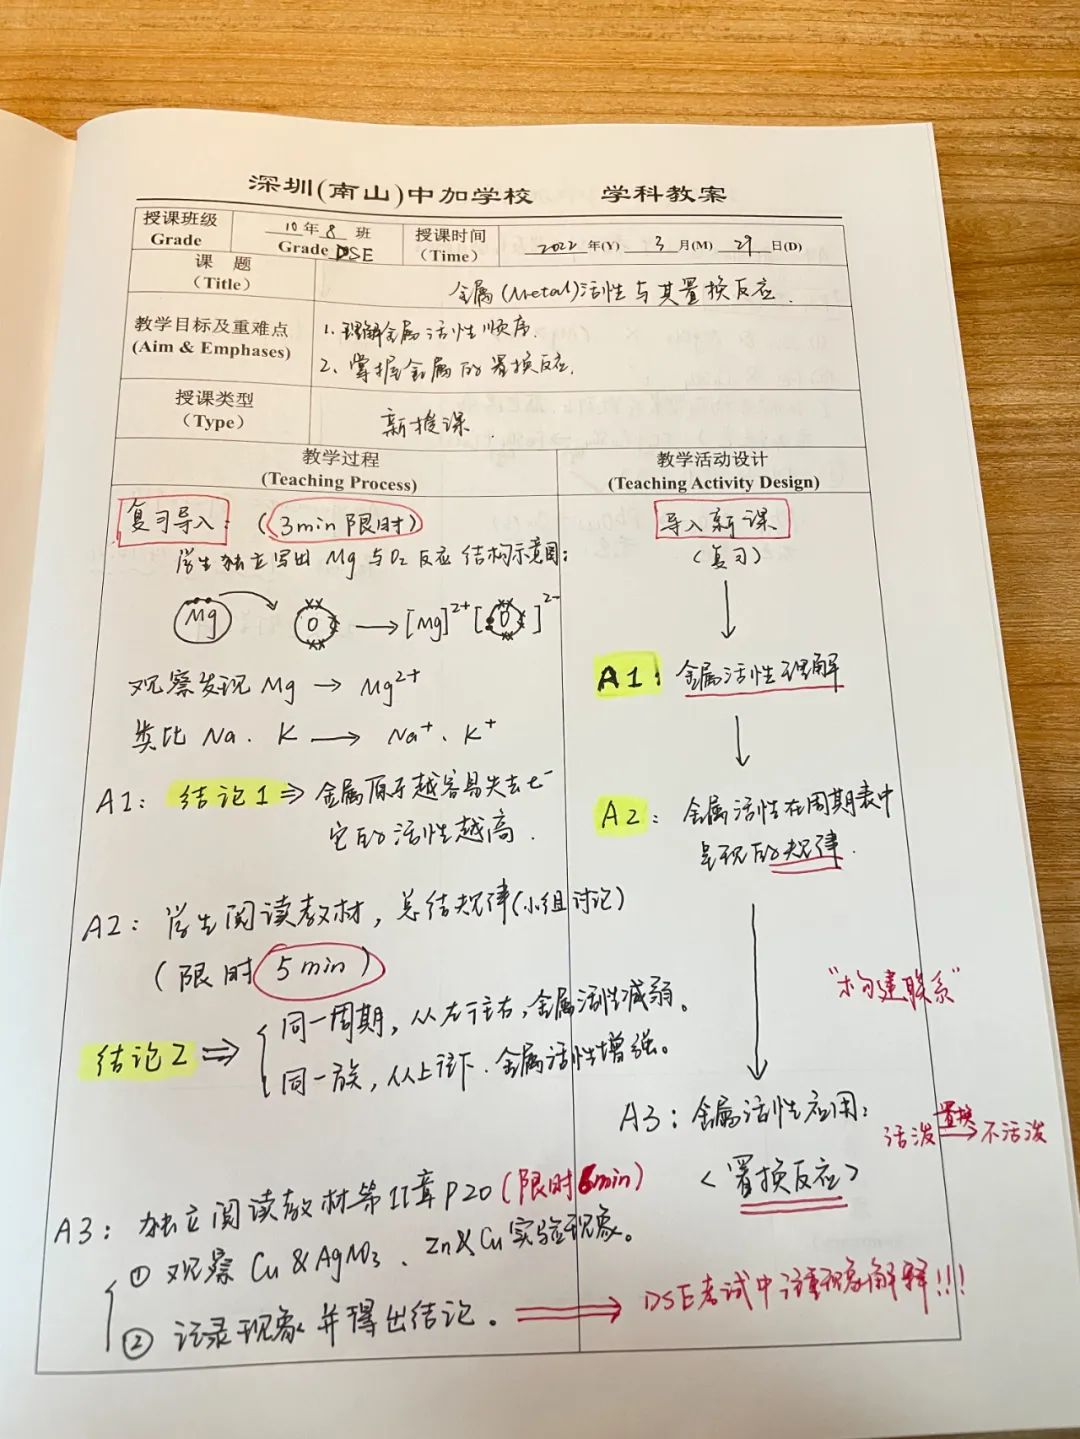 深圳(南山)中加学校 学科教案
授课班级 Grade
10年 8 班 Grade DSE
授课时间 (Time)
2022 年(Y) 3 月(M) 29 日(D)
课 题 (Title)
金属(Metal)活性与其置换反应.
教学目标及重难点 (Aim & Emphases)
1.理解金属活性顺序.
2、掌握金属的置换反应.
授课类型 (Type)
新授课.
教学过程 (Teaching Process)
复习导入: (3min限时)
学生独立写出 Mg 与 O₂ 反应结构示意图:
Mg O → [Mg]²⁺ [O]²⁻
观察发现 Mg → Mg²⁺
类比 Na. K → Na⁺. K⁺
A1: 结论1 ⇒ 金属原子越容易失去e⁻
它的活性越高.
A2: 学生阅读教材, 总结规律(小组讨论)
(限时 5min)
结论2 ⇒ { 同一周期, 从左往右, 金属活性减弱。
同一族, 从上往下. 金属活性增强。
A3: 独立阅读教材第11章P20 (限时6min)
① 观察 Cu & AgNO₃、Zn & Cu 实验现象。
② 记录现象并得出结论。 ⇒ DSE考试中注重现象解释!!!
教学活动设计 (Teaching Activity Design)
导入新课
(复习)
↓
A1: 金属活性理解
↓
A2: 金属活性在周期表中
呈现的规律.
↓
"构建联系"
A3: 金属活性应用:
活泼 置换⇒ 不活泼
<置换反应>